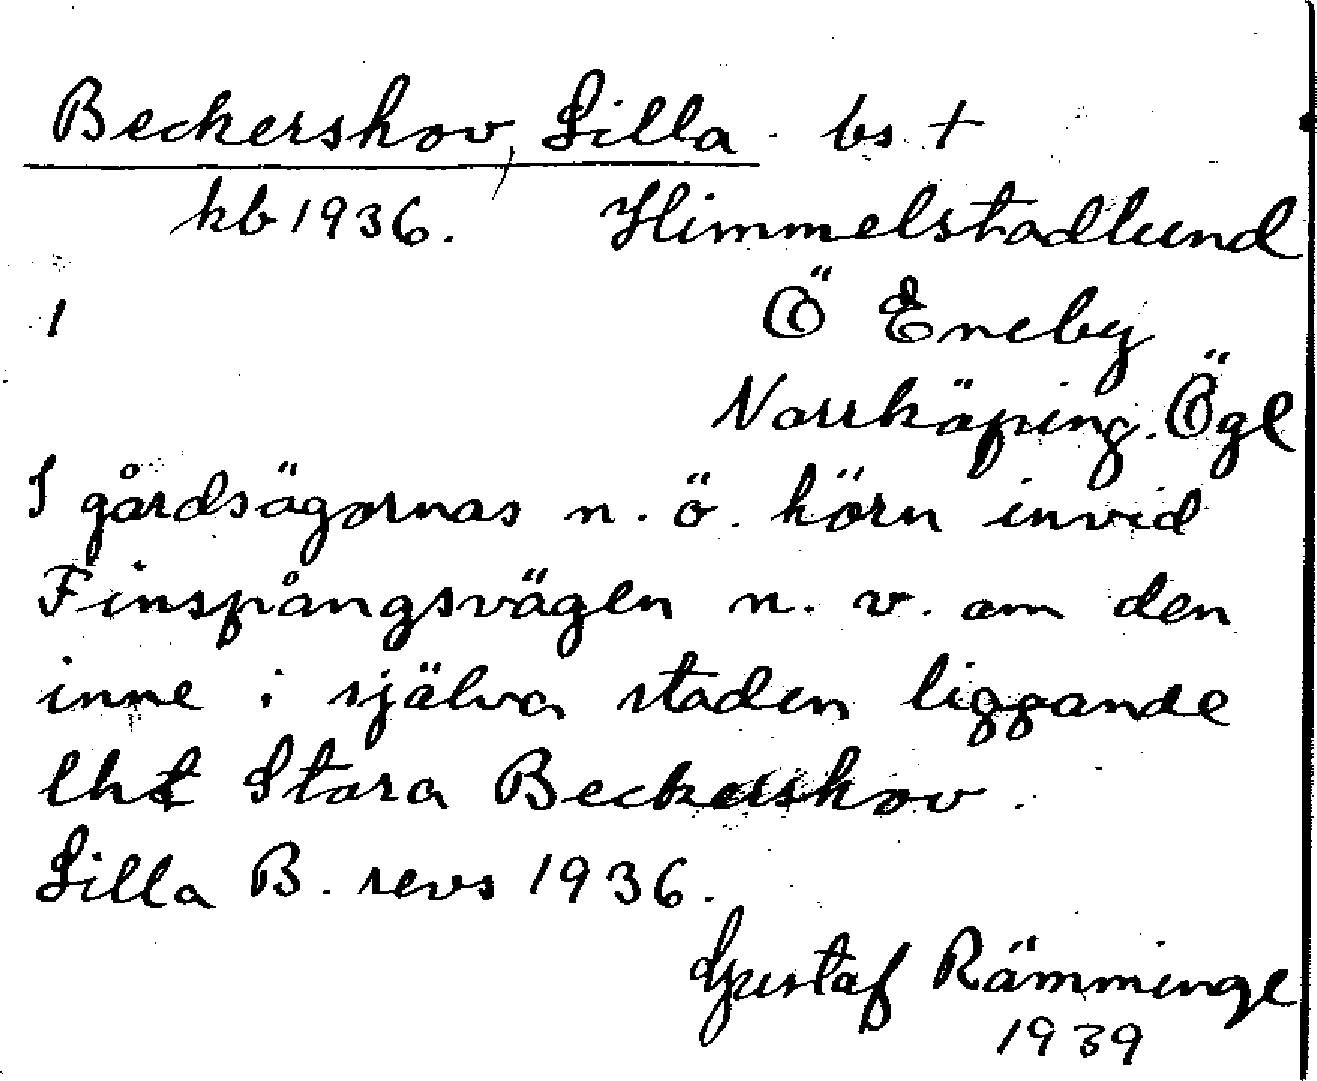 Beckershov, Lilla bs. +
kb 1936. Himmelstadlund
1 Ö Eneby
Norrköping. Ögl
I gårdsägornas n. ö. hörn invid
Finspångsvägen n. v. om den
inne i själva staden liggande
lht Stora Beckershov.
Lilla B. revs 1936.
Gustaf Rämminge
1939